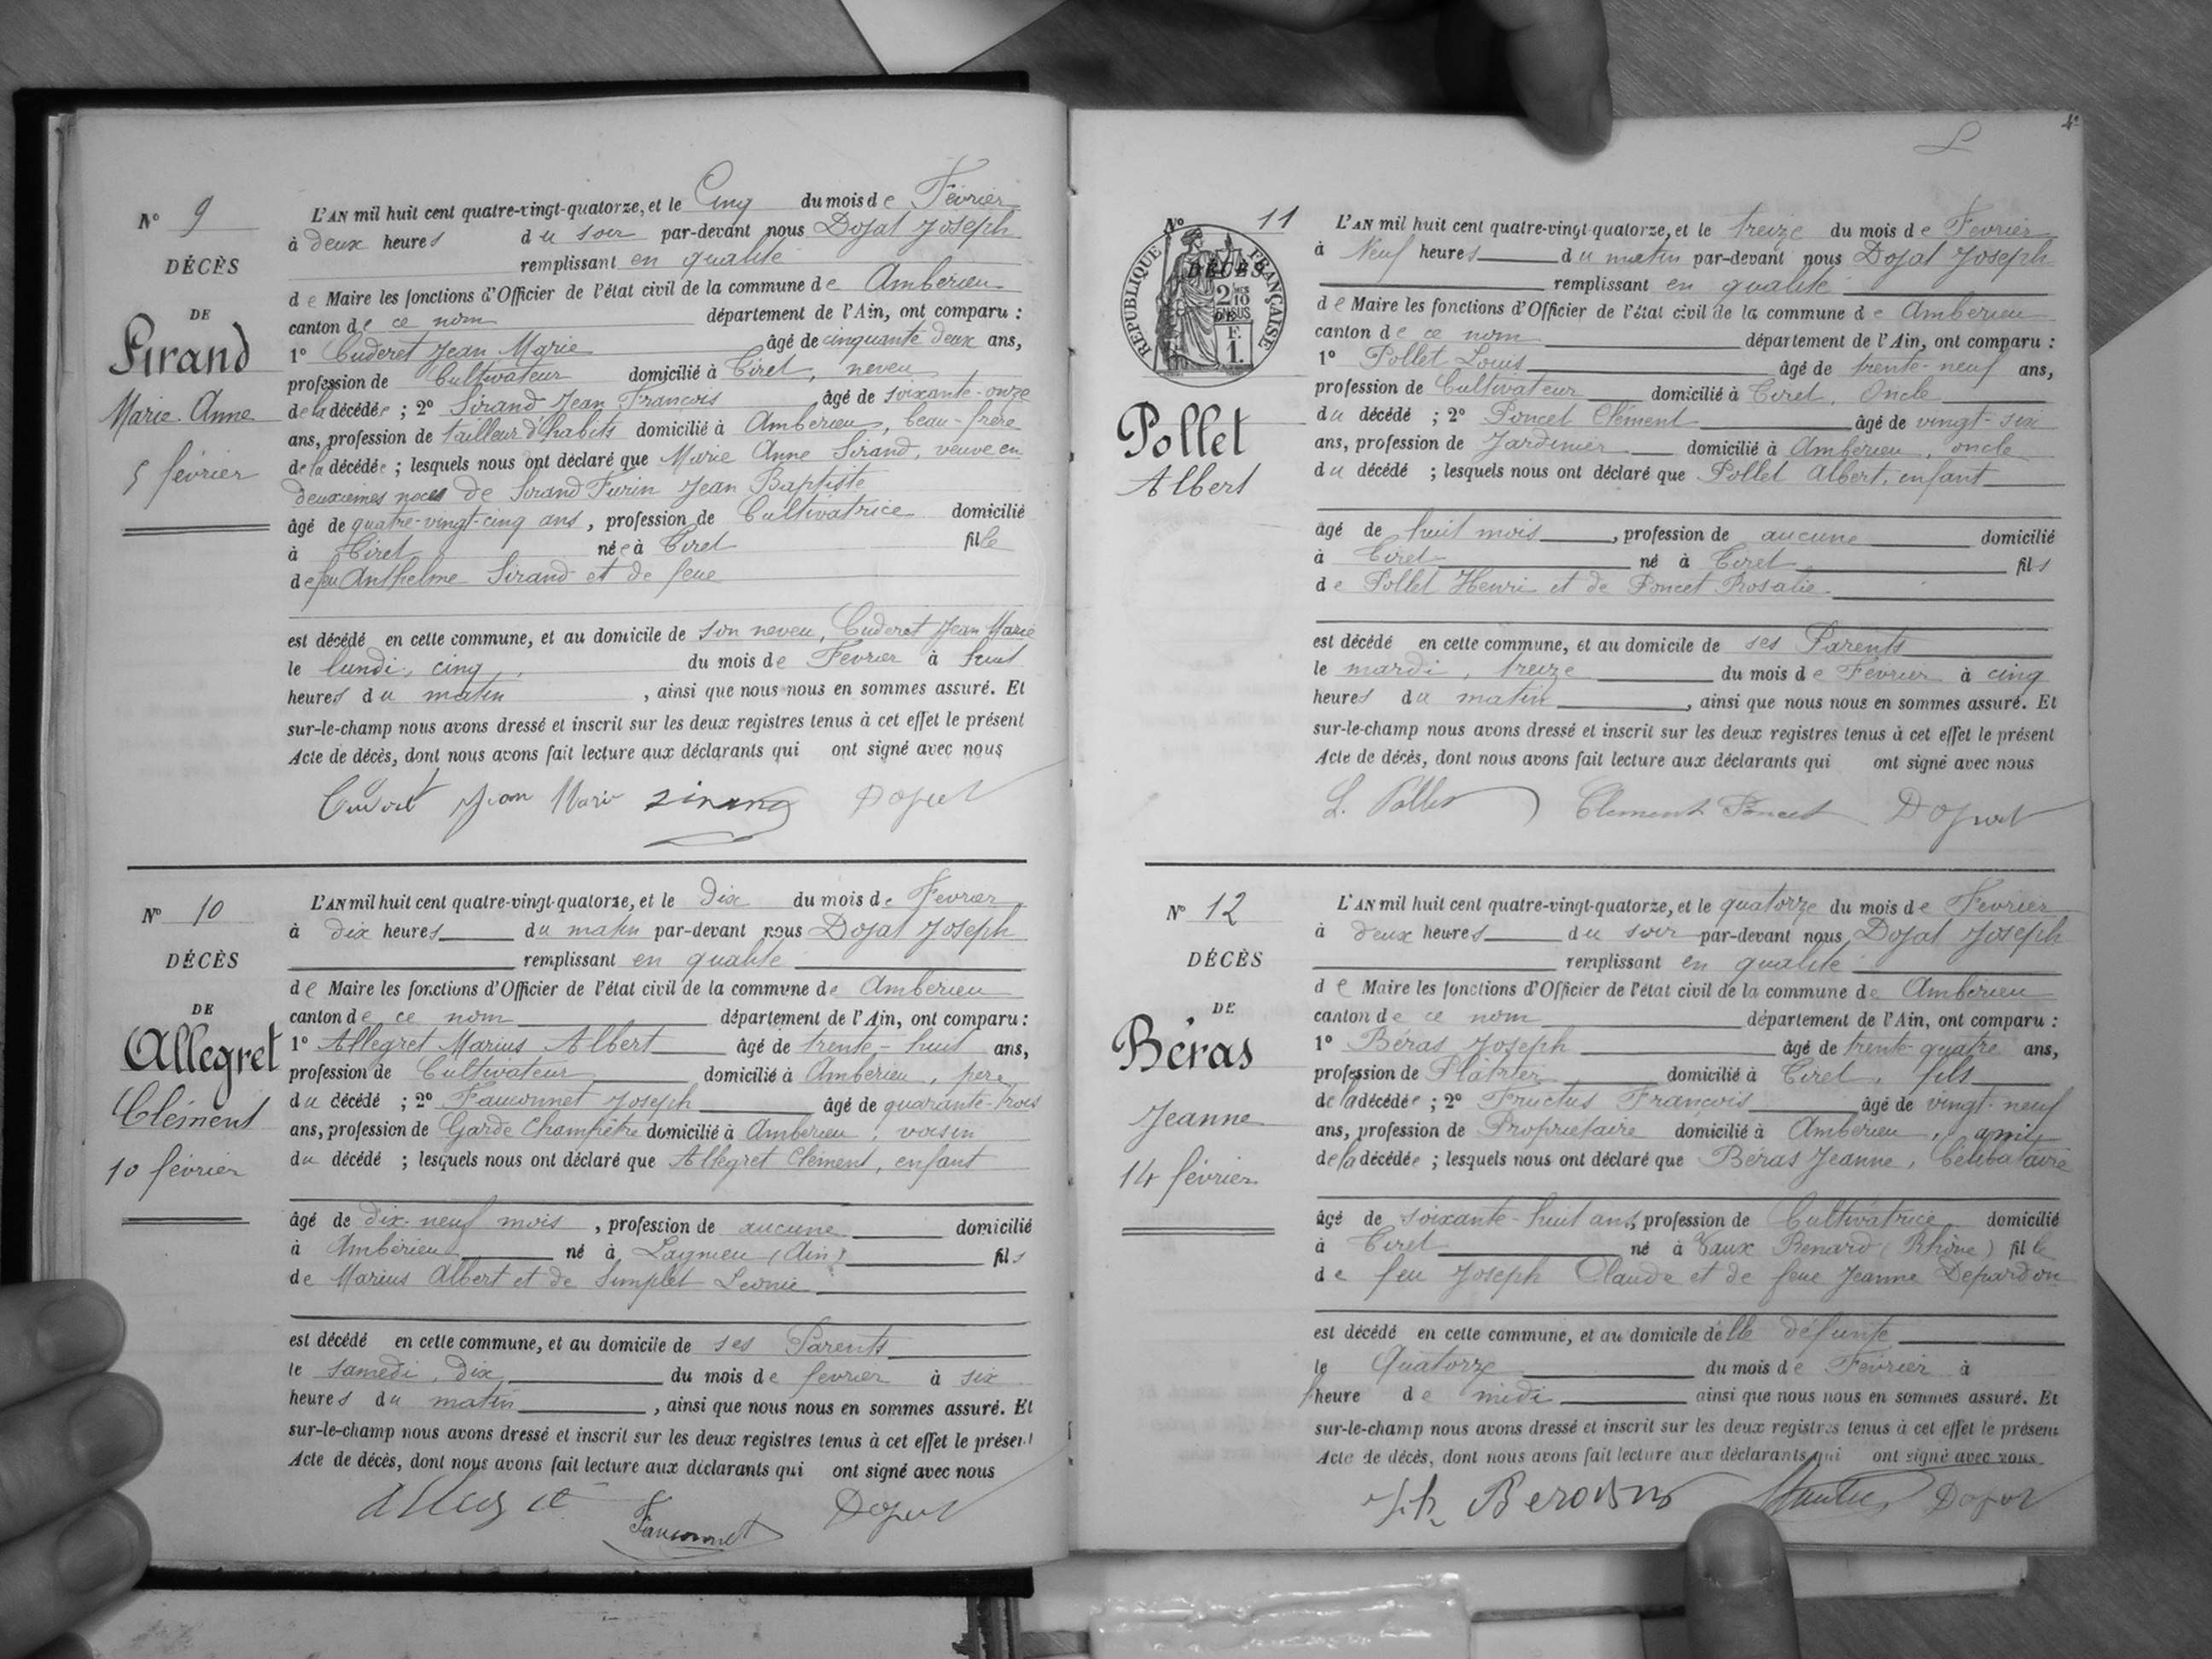 N° 9
DÉCÈS
DE
Sirand
Marie-Anne
5 février
L'AN mil huit cent quatre-vingt-quatorze, et le Cinq du mois de Février
à deux heures du soir par-devant nous Dojat Joseph
remplissant en qualité
de Maire les fonctions d'Officier de l'état civil de la commune de Ambérieu
canton de ce nom département de l'Ain, ont comparu :
1° Cuderet Jean Marie âgé de cinquante deux ans,
profession de Cultivateur domicilié à Tiret, neveu
de la décédée ; 2° Sirand Jean François âgé de soixante-onze
ans, profession de tailleur d'habits domicilié à Ambérieu, beau-frère
de la décédée ; lesquels nous ont déclaré que Marie Anne Sirand, veuve en
deuxièmes noces de Sirand Furin Jean Baptiste
âgé de quatre-vingt-cinq ans, profession de Cultivatrice domicilié
à Tiret née à Tiret fille
de feu Anthelme Sirand et de feue
est décédé en cette commune, et au domicile de son neveu, Cuderet Jean Marie
le lundi, cinq, du mois de Février à huit
heures du matin, ainsi que nous nous en sommes assuré. Et
sur-le-champ nous avons dressé et inscrit sur les deux registres tenus à cet effet le présent
Acte de décès, dont nous avons fait lecture aux déclarants qui ont signé avec nous
Jean Marie Sirand Dojat
N° 10
DÉCÈS
DE
Allegret
Clément
10 février
L'AN mil huit cent quatre-vingt-quatorze, et le Dix du mois de Février
à dix heures du matin par-devant nous Dojat Joseph
remplissant en qualité
de Maire les fonctions d'Officier de l'état civil de la commune de Ambérieu
canton de ce nom département de l'Ain, ont comparu :
1° Allegret Marius Albert âgé de trente-huit ans,
profession de Cultivateur domicilié à Ambérieu, père
du décédé ; 2° Fauconnet Joseph âgé de quarante-trois
ans, profession de Garde Champêtre domicilié à Ambérieu, voisin
du décédé ; lesquels nous ont déclaré que Allegret Clément, enfant
âgé de dix-neuf mois, profession de aucune domicilié
à Ambérieu né à Lagnieu (Ain) fils
de Marius Albert et de Simplet Léonie
est décédé en cette commune, et au domicile de ses Parents
le samedi, dix, du mois de février à six
heures du matin, ainsi que nous nous en sommes assuré. Et
sur-le-champ nous avons dressé et inscrit sur les deux registres tenus à cet effet le présent
Acte de décès, dont nous avons fait lecture aux déclarants qui ont signé avec nous
Allegret Fauconnet Dojat
4e
N° 11
RÉPUBLIQUE FRANÇAISE
DÉCÈS
2/10 EN SUS
DE
1 F.
Pollet
Albert
L'AN mil huit cent quatre-vingt-quatorze, et le treize du mois de Février
à Neuf heures du matin par-devant nous Dojat Joseph
remplissant en qualité
de Maire les fonctions d'Officier de l'état civil de la commune de Ambérieu
canton de ce nom département de l'Ain, ont comparu :
1° Pollet Louis âgé de trente-neuf ans,
profession de Cultivateur domicilié à Tiret, Oncle
du décédé ; 2° Poncet Clément âgé de vingt-six
ans, profession de Jardinier domicilié à Ambérieu, oncle
du décédé ; lesquels nous ont déclaré que Pollet Albert, enfant
âgé de huit mois, profession de aucune domicilié
à Tiret né à Tiret fils
de Pollet Henri et de Poncet Rosalie
est décédé en cette commune, et au domicile de ses Parents
le mardi, treize du mois de Février à cinq
heures du matin, ainsi que nous nous en sommes assuré. Et
sur-le-champ nous avons dressé et inscrit sur les deux registres tenus à cet effet le présent
Acte de décès, dont nous avons fait lecture aux déclarants qui ont signé avec nous
L. Pollet Clément Poncet Dojat
N° 12
DÉCÈS
DE
Béras
Jeanne
14 février
L'AN mil huit cent quatre-vingt-quatorze, et le quatorze du mois de Février
à deux heures du soir par-devant nous Dojat Joseph
remplissant en qualité
de Maire les fonctions d'Officier de l'état civil de la commune de Ambérieu
canton de ce nom département de l'Ain, ont comparu :
1° Béras Joseph âgé de trente-quatre ans,
profession de Plâtrier domicilié à Tiret, fils
de la décédée ; 2° Fructus François âgé de vingt-neuf
ans, profession de Propriétaire domicilié à Ambérieu, ami
de la décédée ; lesquels nous ont déclaré que Béras Jeanne, Célibataire
âgé de soixante-huit ans, profession de Cultivatrice domicilié
à Tiret né à Vaux Renard (Rhône) fille
de feu Joseph Claude et de feue Jeanne Depardon
est décédé en cette commune, et au domicile de lle défunte
le Quatorze du mois de Février à
heure de midi ainsi que nous nous en sommes assuré. Et
sur-le-champ nous avons dressé et inscrit sur les deux registres tenus à cet effet le présent
Acte de décès, dont nous avons fait lecture aux déclarants qui ont signé avec nous
Dojat